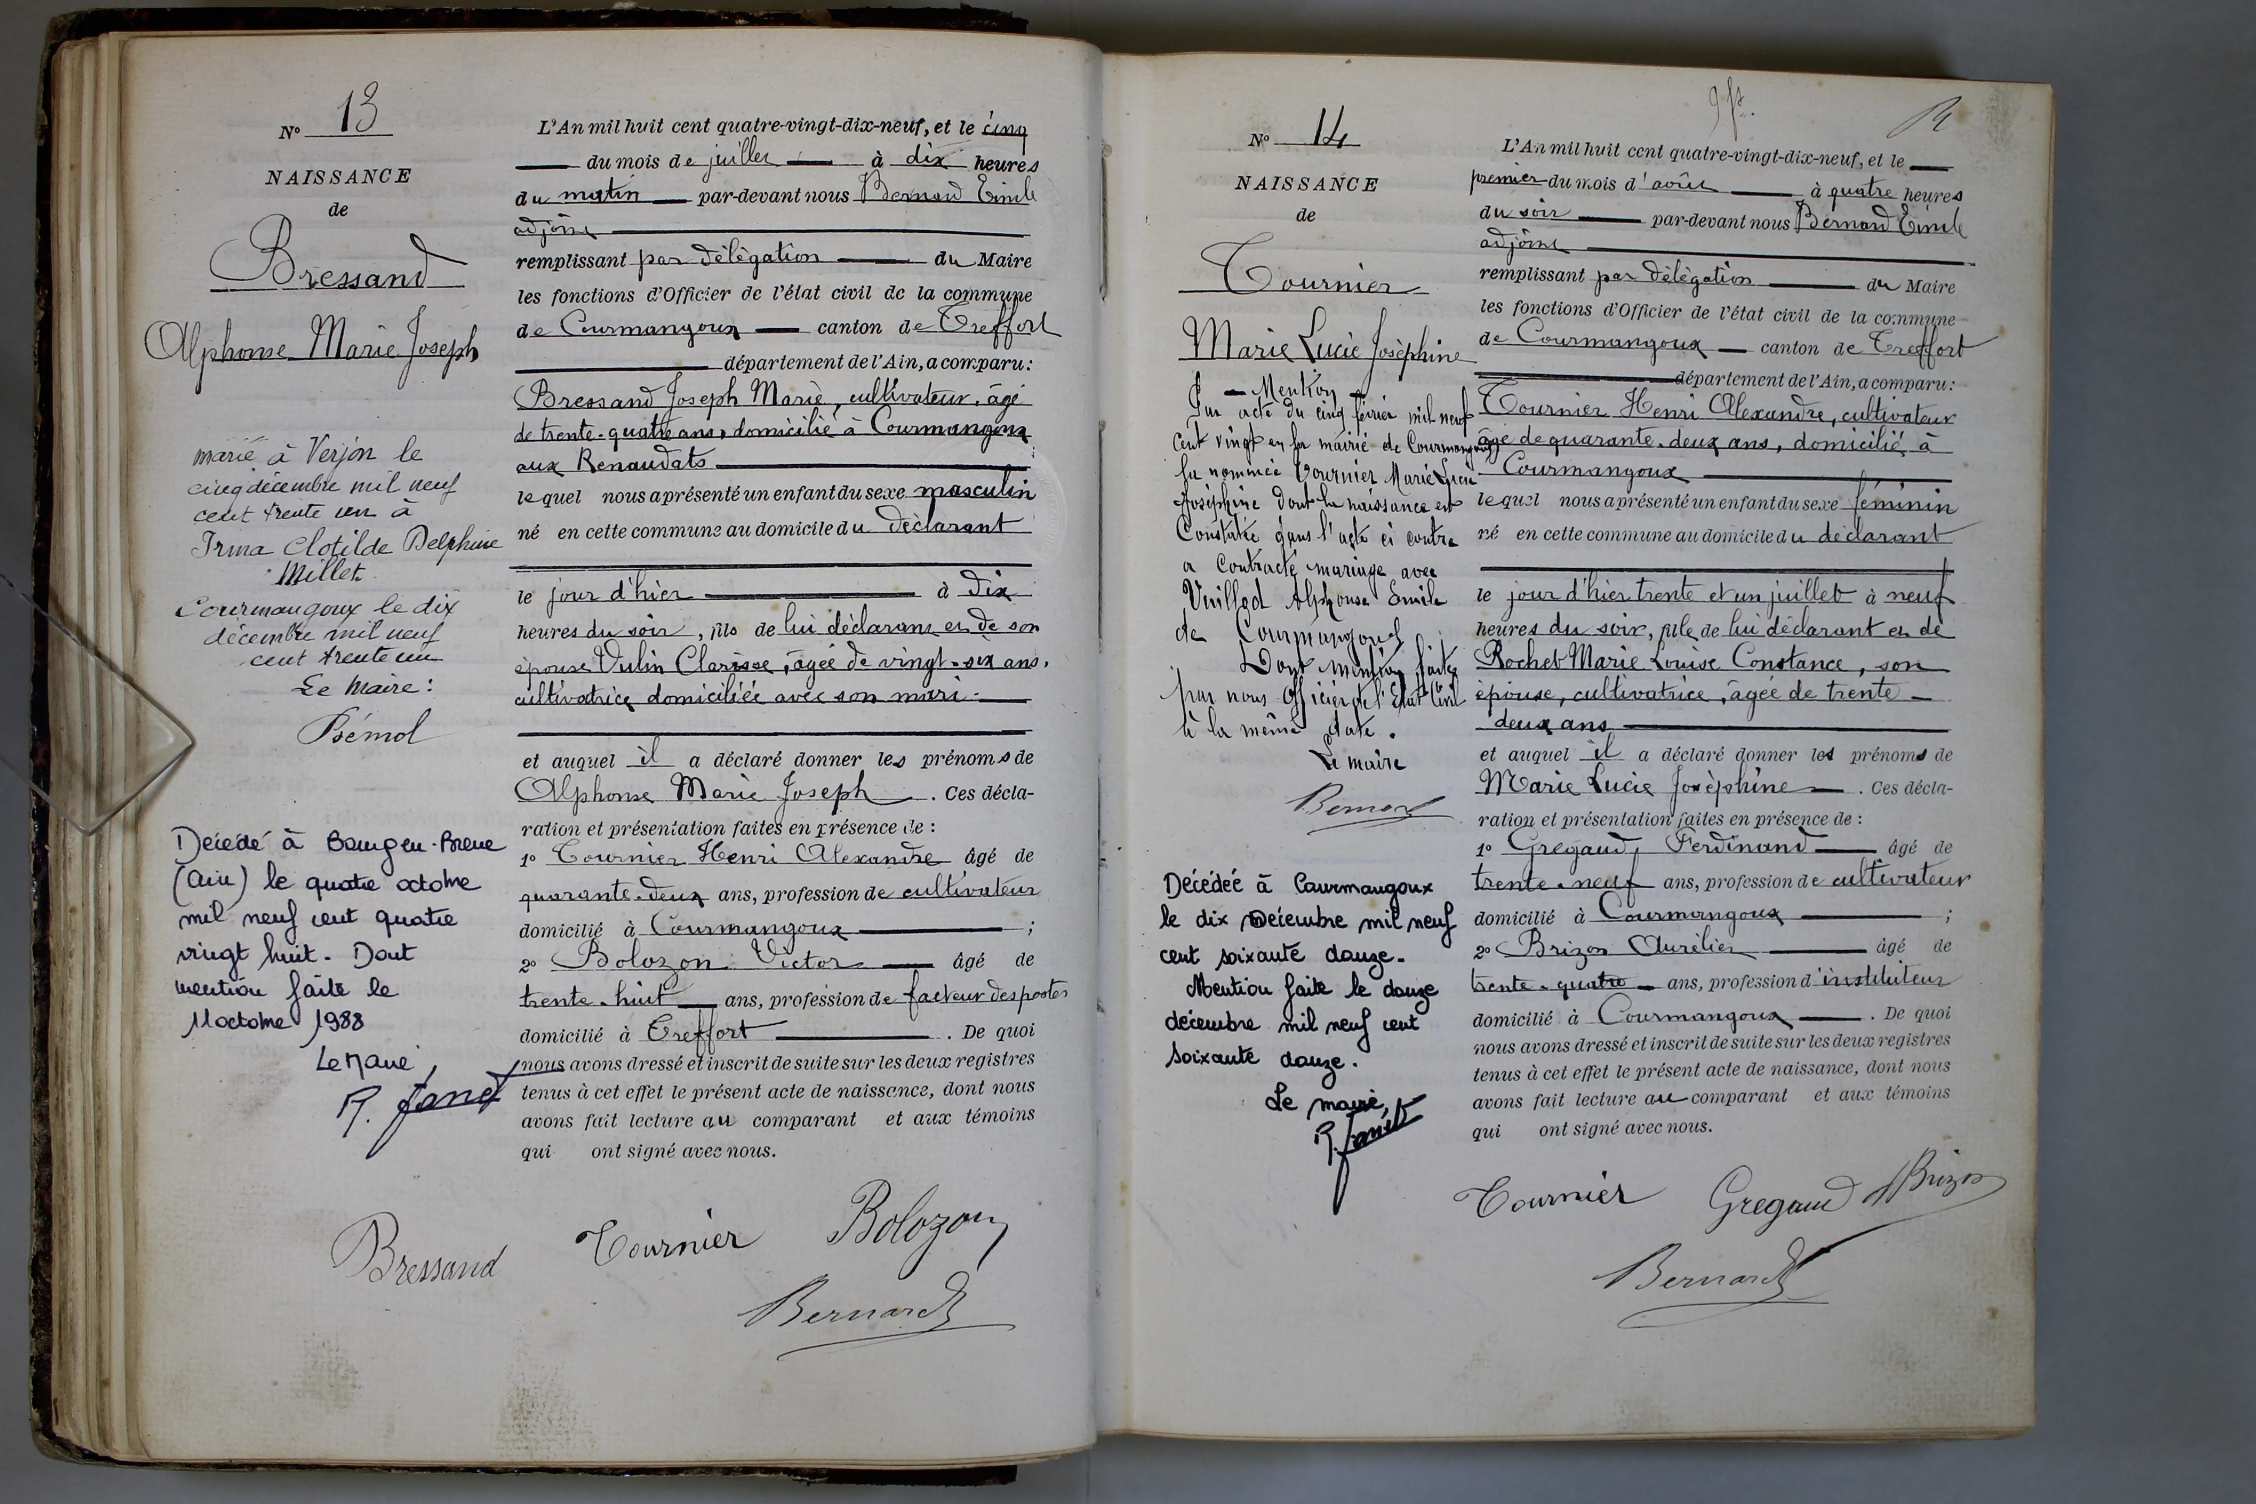 N° 13
NAISSANCE
de
Bressand
Alphonse Marie Joseph
marié à Verjon le
cinq décembre mil neuf
cent trente un à
Irma Clotilde Delphine
Millet
Courmangoux le dix
décembre mil neuf
cent trente un
Le Maire :
Bémol
Décédé à Bourg en Bresse
(Ain) le quatre octobre
mil neuf cent quatre
vingt huit. Dont
mention faite le
11 octobre 1988
Le Maire,
R. Janet
L'An mil huit cent quatre-vingt-dix-neuf, et le cinq
du mois de juillet à dix heures
du matin par-devant nous Bernard Emile
adjoint
remplissant par délégation du Maire
les fonctions d'Officier de l'état civil de la commune
de Courmangoux canton de Treffort
département de l'Ain, a comparu :
Bressand Joseph Marie, cultivateur, âgé
de trente-quatre ans, domicilié à Courmangoux
aux Renaudats
lequel nous a présenté un enfant du sexe masculin
né en cette commune au domicile du déclarant
le jour d'hier à dix
heures du soir, fils de lui déclarant et de son
épouse Vulin Clarisse, âgée de vingt-six ans,
cultivatrice domiciliée avec son mari
et auquel il a déclaré donner les prénoms de
Alphonse Marie Joseph. Ces décla-
ration et présentation faites en présence de :
1° Tournier Henri Alexandre âgé de
quarante-deux ans, profession de cultivateur
domicilié à Courmangoux ;
2° Bolozon Victor âgé de
trente-huit ans, profession de facteur des postes
domicilié à Treffort. De quoi
nous avons dressé et inscrit de suite sur les deux registres
tenus à cet effet le présent acte de naissance, dont nous
avons fait lecture au comparant et aux témoins
qui ont signé avec nous.
Bressand Tournier Bolozon
Bernard
N° 14
NAISSANCE
de
Tournier
Marie Lucie Josèphine
Mention
Par acte du cinq février mil neuf
cent vingt en la mairie de Courmangoux
la nommée Tournier Marie Lucie
Joséphine dont la naissance est
Constatée dans l'acte ci contre
a Contracté mariage avec
Vuillod Alphonse Emile
de Courmangoux
Dont mention faite
par nous Officier de l'Etat Civil
à la même date.
Le maire
Bernard
Décédée à Courmangoux
le dix Décembre mil neuf
cent soixante douze.
Mention faite le douze
décembre mil neuf cent
soixante douze.
Le maire,
R. Janet
L'An mil huit cent quatre-vingt-dix-neuf, et le
premier du mois d'août à quatre heures
du soir par-devant nous Bernard Emile
adjoint
remplissant par délégation du Maire
les fonctions d'Officier de l'état civil de la commune
de Courmangoux canton de Treffort
département de l'Ain, a comparu :
Tournier Henri Alexandre, cultivateur
âgé de quarante-deux ans, domicilié à
Courmangoux
lequel nous a présenté un enfant du sexe féminin
né en cette commune au domicile du déclarant
le jour d'hier trente et un juillet à neuf
heures du soir, fille de lui déclarant et de
Rochet Marie Louise Constance, son
épouse, cultivatrice, âgée de trente-
deux ans
et auquel il a déclaré donner les prénoms de
Marie Lucie Josèphine. Ces décla-
ration et présentation faites en présence de :
1° Gregaud Ferdinand âgé de
trente-neuf ans, profession de cultivateur
domicilié à Courmangoux ;
2° Brizon Aurélien âgé de
trente-quatre ans, profession d'instituteur
domicilié à Courmangoux. De quoi
nous avons dressé et inscrit de suite sur les deux registres
tenus à cet effet le présent acte de naissance, dont nous
avons fait lecture au comparant et aux témoins
qui ont signé avec nous.
Tournier Gregaud Brizon
Bernard